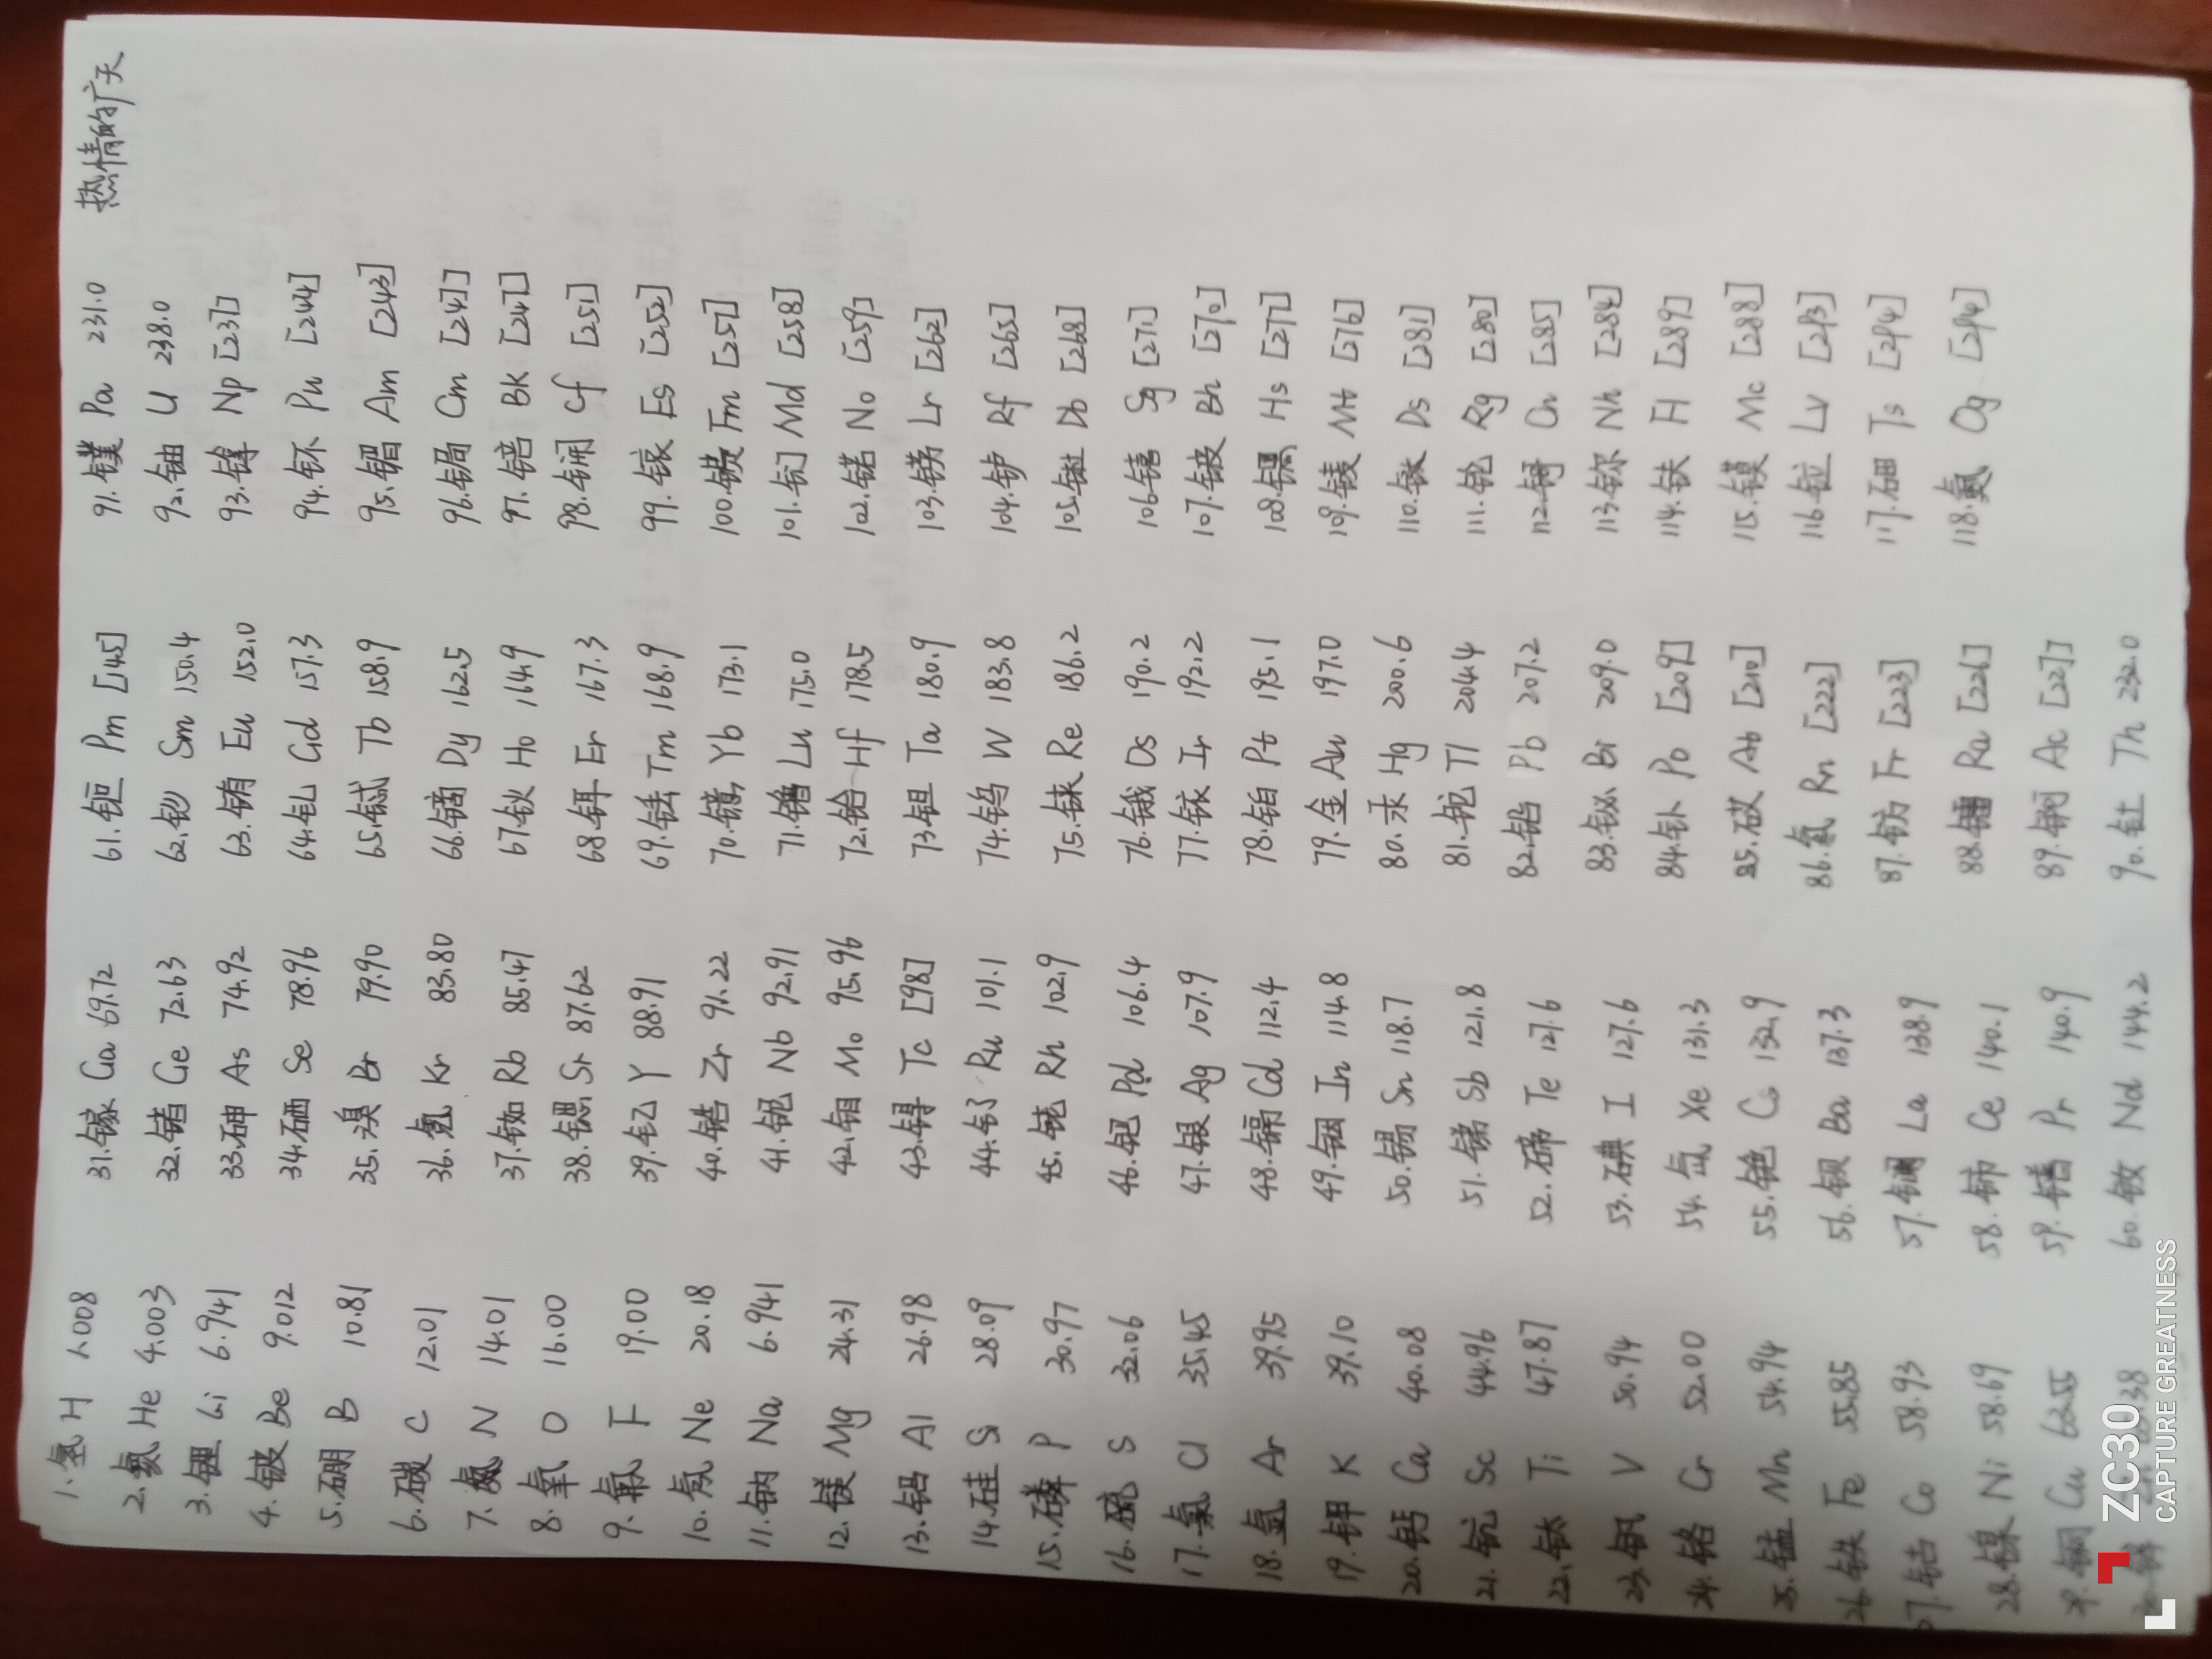 热情的扩天
1.氢 H 1.008
2.氦 He 4.003
3.锂 Li 6.941
4.铍 Be 9.012
5.硼 B 10.81
6.碳 C 12.01
7.氮 N 14.01
8.氧 O 16.00
9.氟 F 19.00
10.氖 Ne 20.18
11.钠 Na 6.941
12.镁 Mg 24.31
13.铝 Al 26.98
14.硅 Si 28.09
15.磷 P 30.97
16.硫 S 32.06
17.氯 Cl 35.45
18.氩 Ar 39.95
19.钾 K 39.10
20.钙 Ca 40.08
21.钪 Sc 44.96
22.钛 Ti 47.87
23.钒 V 50.94
24.铬 Cr 52.00
25.锰 Mn 54.94
26.铁 Fe 55.85
27.钴 Co 58.93
28.镍 Ni 58.69
29.铜 Cu 63.55
30.锌
31.镓 Ga 69.72
32.锗 Ge 72.63
33.砷 As 74.92
34.硒 Se 78.96
35.溴 Br 79.90
36.氪 Kr 83.80
37.铷 Rb 85.47
38.锶 Sr 87.62
39.钇 Y 88.91
40.锆 Zr 91.22
41.铌 Nb 92.91
42.钼 Mo 95.96
43.锝 Tc [98]
44.钌 Ru 101.1
45.铑 Rh 102.9
46.钯 Pd 106.4
47.银 Ag 107.9
48.镉 Cd 112.4
49.铟 In 114.8
50.锡 Sn 118.7
51.锑 Sb 121.8
52.碲 Te 127.6
53.碘 I 127.6
54.氙 Xe 131.3
55.铯 Cs 132.9
56.钡 Ba 137.3
57.镧 La 138.9
58.铈 Ce 140.1
59.镨 Pr 140.9
60.钕 Nd 144.2
61.钷 Pm [145]
62.钐 Sm 150.4
63.铕 Eu 152.0
64.钆 Gd 157.3
65.铽 Tb 158.9
66.镝 Dy 162.5
67.钬 Ho 164.9
68.铒 Er 167.3
69.铥 Tm 168.9
70.镱 Yb 173.1
71.镥 Lu 175.0
72.铪 Hf 178.5
73.钽 Ta 180.9
74.钨 W 183.8
75.铼 Re 186.2
76.锇 Os 190.2
77.铱 Ir 192.2
78.铂 Pt 195.1
79.金 Au 197.0
80.汞 Hg 200.6
81.铊 Tl 204.4
82.铅 Pb 207.2
83.铋 Bi 209.0
84.钋 Po [209]
85.砹 At [210]
86.氡 Rn [222]
87.钫 Fr [223]
88.镭 Ra [226]
89.锕 Ac [227]
90.钍 Th 232.0
91.镤 Pa 231.0
92.铀 U 238.0
93.镎 Np [237]
94.钚 Pu [244]
95.镅 Am [243]
96.锔 Cm [247]
97.锫 Bk [247]
98.锎 Cf [251]
99.锿 Es [252]
100.镄 Fm [257]
101.钔 Md [258]
102.锘 No [259]
103.铹 Lr [262]
104.𬬻 Rf [265]
105.𬭊 Db [268]
106.𬭳 Sg [271]
107.𬭛 Bh [270]
108.𬭶 Hs [277]
109.鿏 Mt [276]
110.𫟼 Ds [281]
111.𬬭 Rg [280]
112.鿔 Cn [285]
113.鿭 Nh [284]
114.𫓧 Fl [289]
115.镆 Mc [288]
116.𫟷 Lv [293]
117.鿬 Ts [294]
118.鿫 Og [294]
ZC30
CAPTURE GREATNESS